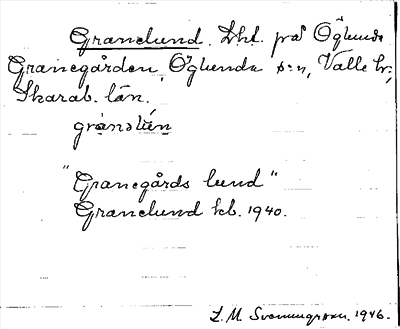 Granelund. Lht. på Öglunda
Granegården, Öglunda s:n, Valle hd,
Skarab. län.
"Granegårds lund"
Granelund kb. 1940.
L. M. Svenungsson. 1946.